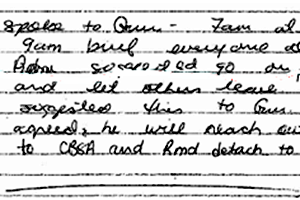 spoke to Gun - 7am at
9am brief everyone a
go on
and let others leave
suggested this to Gun.
agreed, he will reach ou
to CBSA and Rmd detach to